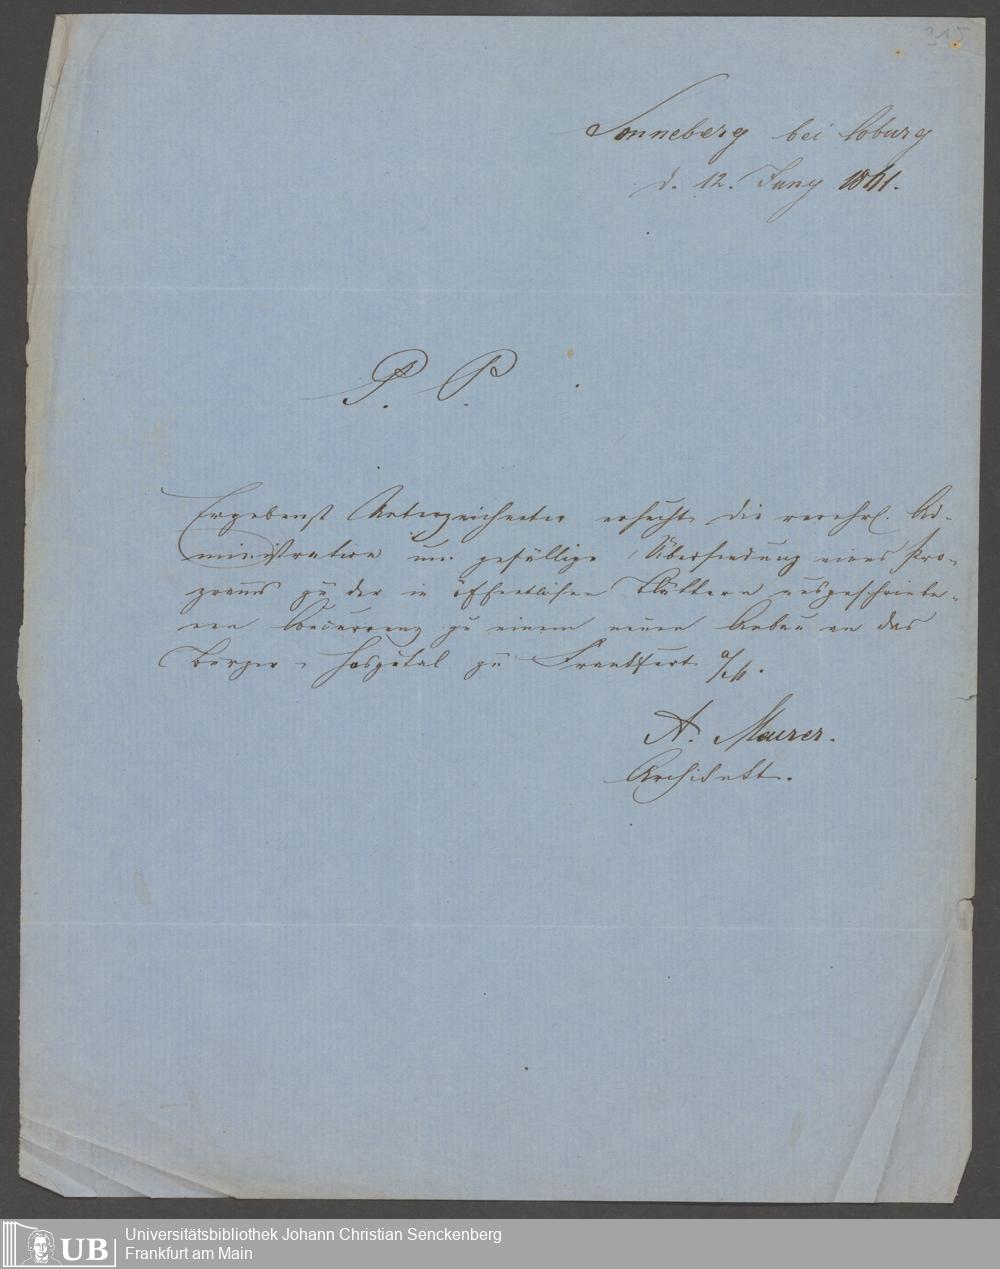 315
Sonneberg bei Coburg
d. 12. Juny 1861.
P. P.
Ergebenst Unterzeichneter ersucht die verehrl. Ad-
ministration um gefällige Übersendung eines Pro-
gramms zu der in öffentlichen Blättern ausgeschriebe-
nen Concurrenz zu einem neuen Anbau an das
Bürger-Hospital zu Frankfurt a/M.
A. Maurer.
Architekt.
UB Universitätsbibliothek Johann Christian Senckenberg
Frankfurt am Main